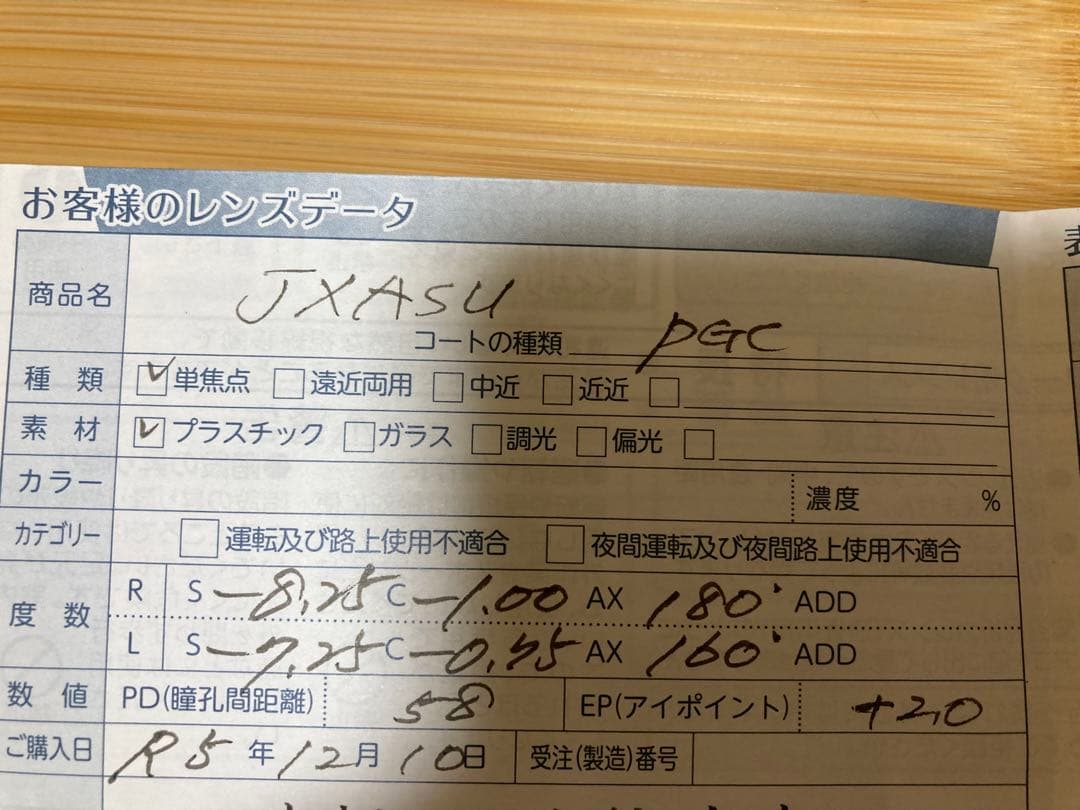 お客様のレンズデータ
商品名 JXASU
コートの種類 PGC
種 類 ☑単焦点 □遠近両用 □中近 □近近 □
素 材 ☑プラスチック □ガラス □調光 □偏光 □
カラー 濃度 %
カテゴリー □運転及び路上使用不適合 □夜間運転及び夜間路上使用不適合
度 数 R S -8.25 C -1.00 AX 180° ADD
L S -7.25 C -0.75 AX 160° ADD
数 値 PD(瞳孔間距離) 58 EP(アイポイント) +2.0
ご購入日 R5年12月10日 受注(製造)番号